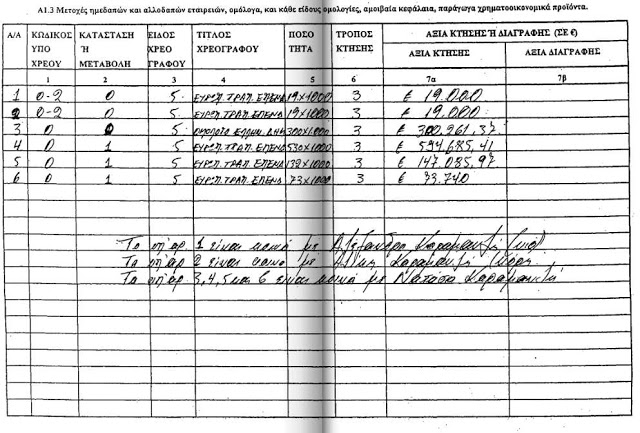 Α1.3 Μετοχές ημεδαπών και αλλοδαπών εταιρειών, ομόλογα, και κάθε είδους ομολογίες, αμοιβαία κεφάλαια, παράγωγα χρηματοοικονομικά προϊόντα.
Α/Α ΚΩΔΙΚΟΣ ΥΠΟ ΧΡΕΟΥ ΚΑΤΑΣΤΑΣΗ Ή ΜΕΤΑΒΟΛΗ ΕΙΔΟΣ ΧΡΕΟ ΓΡΑΦΟΥ ΤΙΤΛΟΣ ΧΡΕΟΓΡΑΦΟΥ ΠΟΣΟ ΤΗΤΑ ΤΡΟΠΟΣ ΚΤΗΣΗΣ ΑΞΙΑ ΚΤΗΣΗΣ Ή ΔΙΑΓΡΑΦΗΣ (ΣΕ €)
ΑΞΙΑ ΚΤΗΣΗΣ ΑΞΙΑ ΔΙΑΓΡΑΦΗΣ
1 2 3 4 5 6 7α 7β
1 0-2 0 5 ΕΥΡΩΠ. ΤΡΑΠ. ΕΠΕΝΔ 19x1000 3 € 19.000
2 0-2 0 5 ΕΥΡΩΠ. ΤΡΑΠ. ΕΠΕΝΔ 19x1000 3 € 19.000
3 0 0 5 ΟΜΟΛΟΓΟ ΕΛΛΗΝ. ΔΗΜ 300x1000 3 € 300.261,37
4 0 1 5 ΕΥΡΩΠ. ΤΡΑΠ. ΕΠΕΝΔ 530x1000 3 € 594.685,41
5 0 1 5 ΕΥΡΩΠ. ΤΡΑΠ. ΕΠΕΝΔ 132x1000 3 € 147.085,97
6 0 1 5 ΕΥΡΩΠ. ΤΡΑΠ. ΕΠΕΝΔ 73x1000 3 € 73.740
Τα 1 είναι κοινά με Αλέξανδρο Καραμανλή
Τα 2 είναι κοινά με Καραμανλή
Τα 3,4,5 και 6 είναι κοινά με Νατάσα Καραμανλή